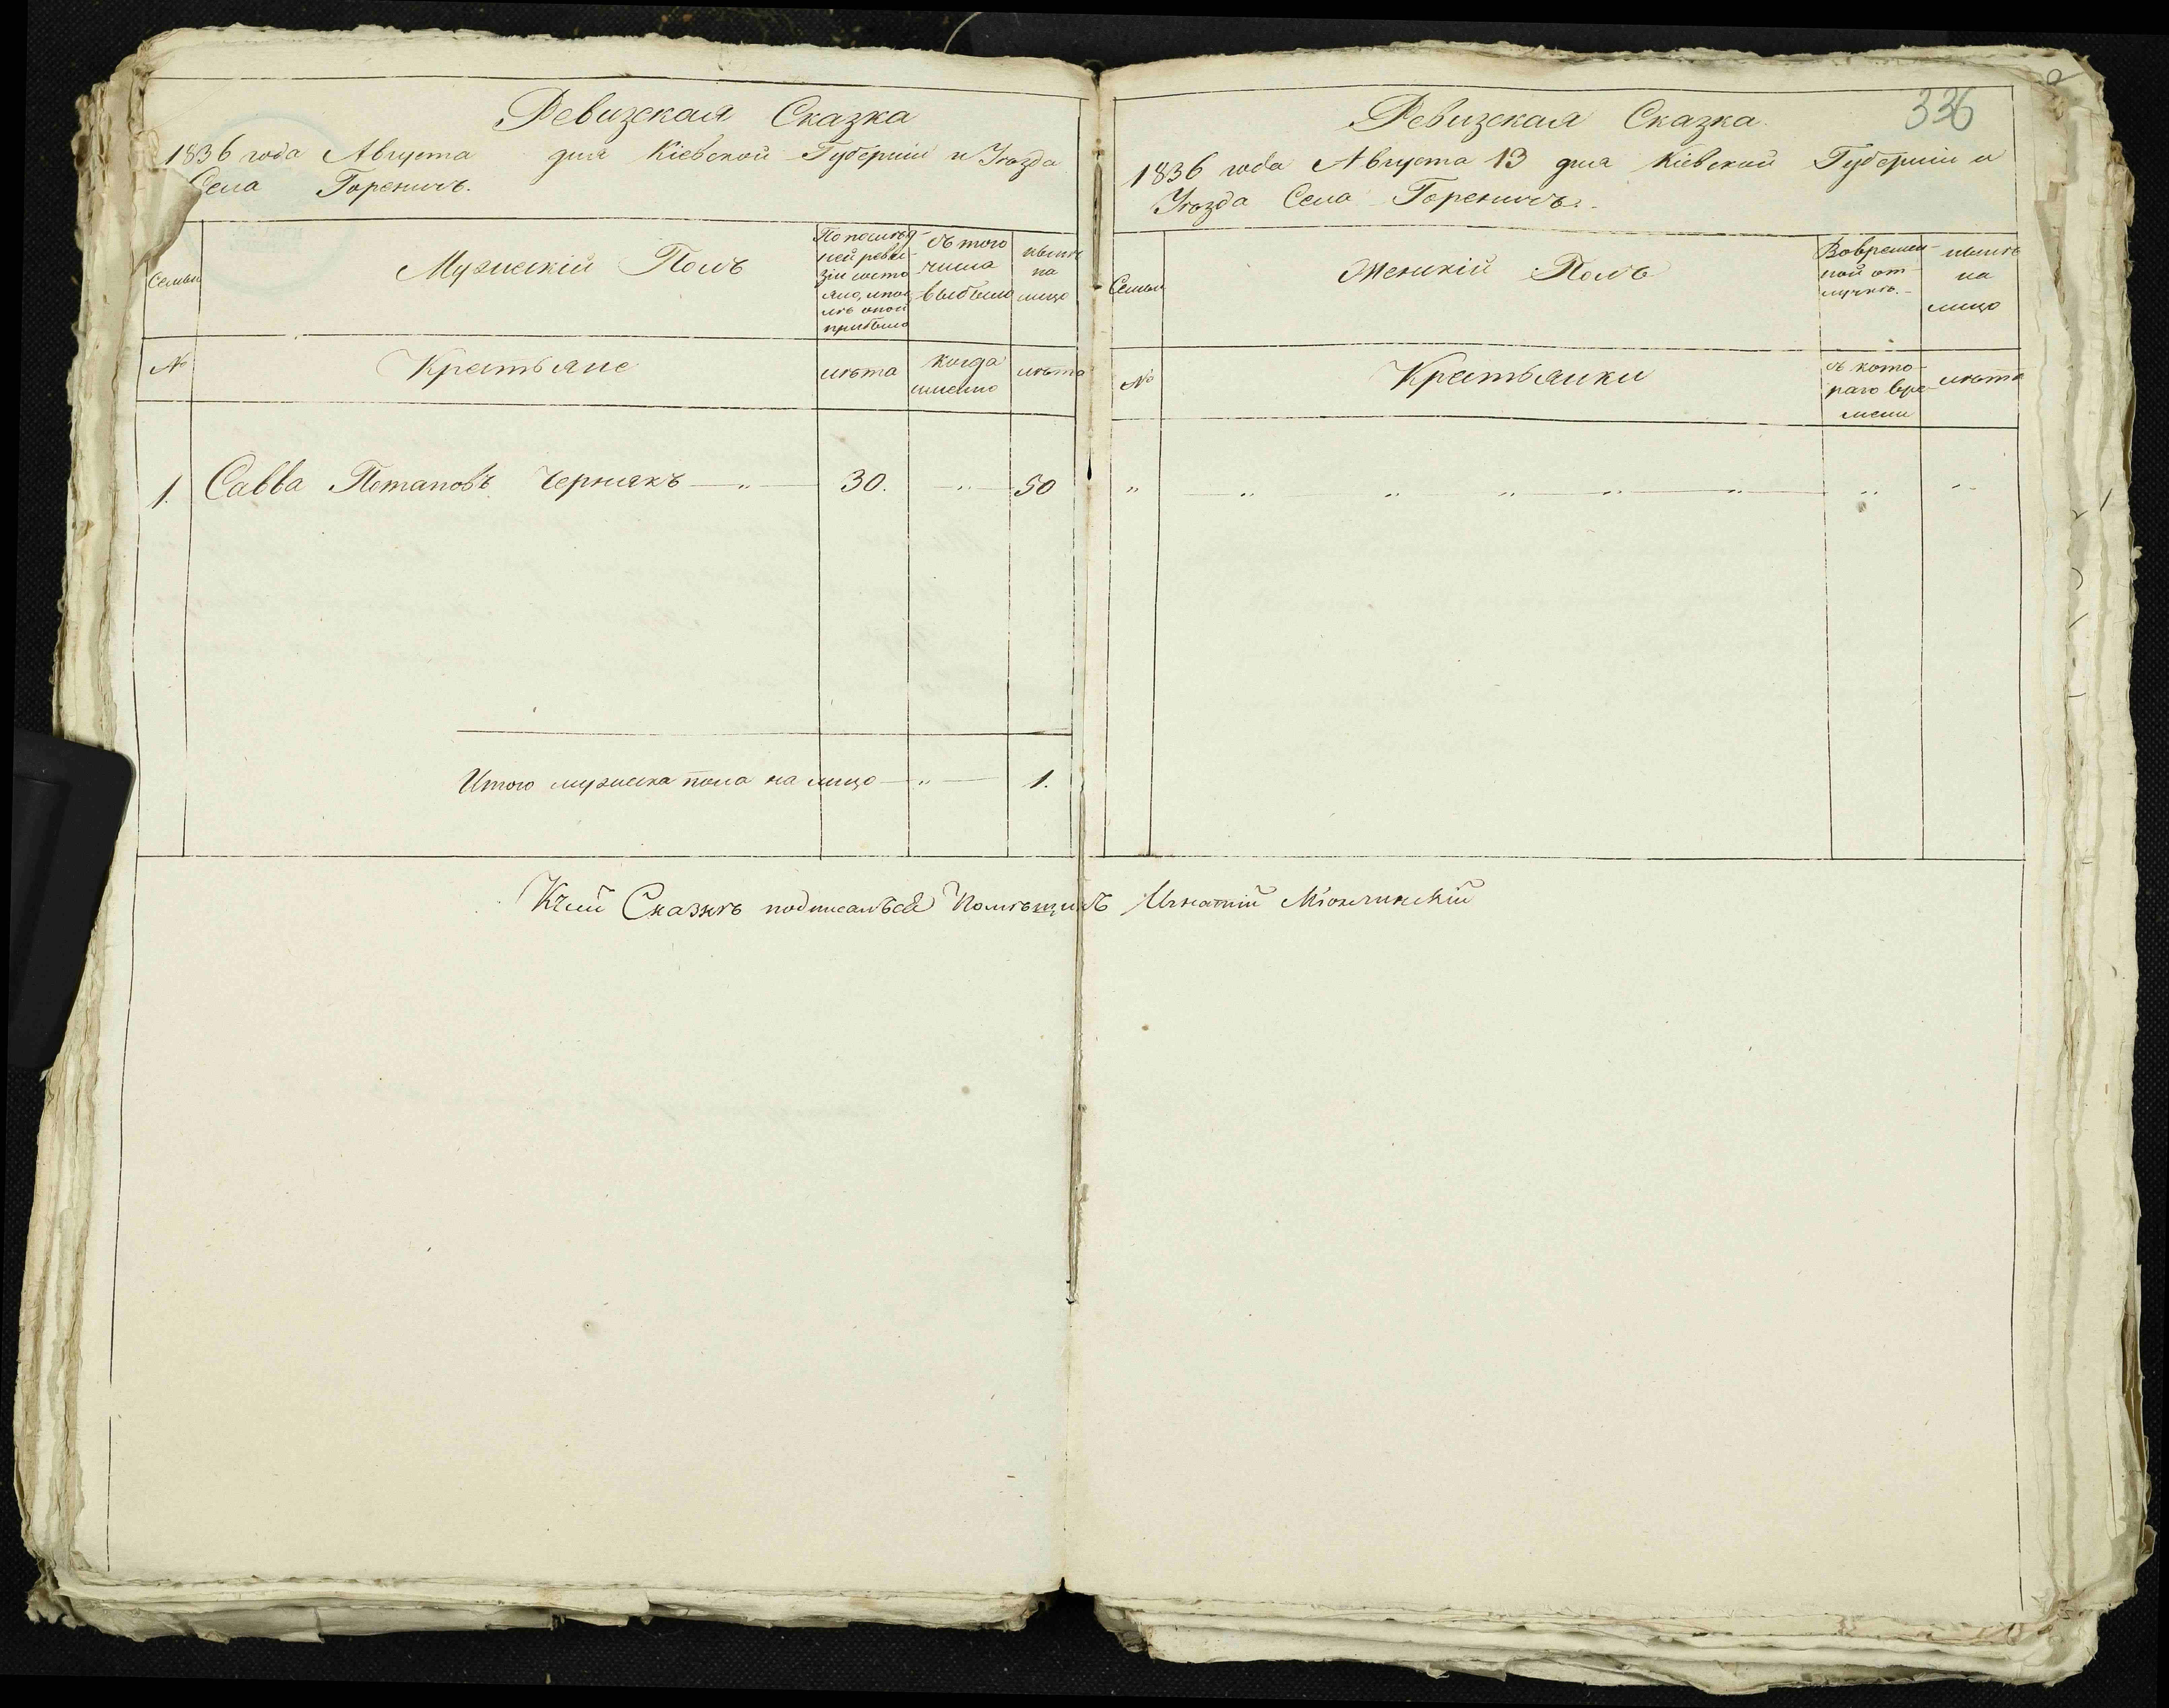 Ревизская Сказка
1836 года Августа дня Кіевской Губерніи и Уѣзда
Села Гореничъ.
Семьи
Мужескій Полъ
По послѣд-
ней реви-
зіи состо
яло, и пос
лѣ оной
прибыло
Съ того
числа
выбыло
нынѣ
на
лицо
№
Крестьяне
лѣта
когда
именно
лѣта
1. Савва Потаповъ Чернякъ — „ — 30. — „ — 50
Итого мужеска пола на лицо — „ — 1.
336
Ревизская Сказка.
1836 года Августа 13 дня Кіевской Губерніи и
Уѣзда Села Гореничъ.
Семьи
Женскій Полъ
Вовремен-
ной от-
лучкѣ.
нынѣ
на
лицо
№
Крестьянки
съ кото-
раго вре-
мени
лѣта
„ — „ — „ — „ — „ — „ — „ „
Къ сей Сказкѣ подписался Помѣщикъ Игнатій